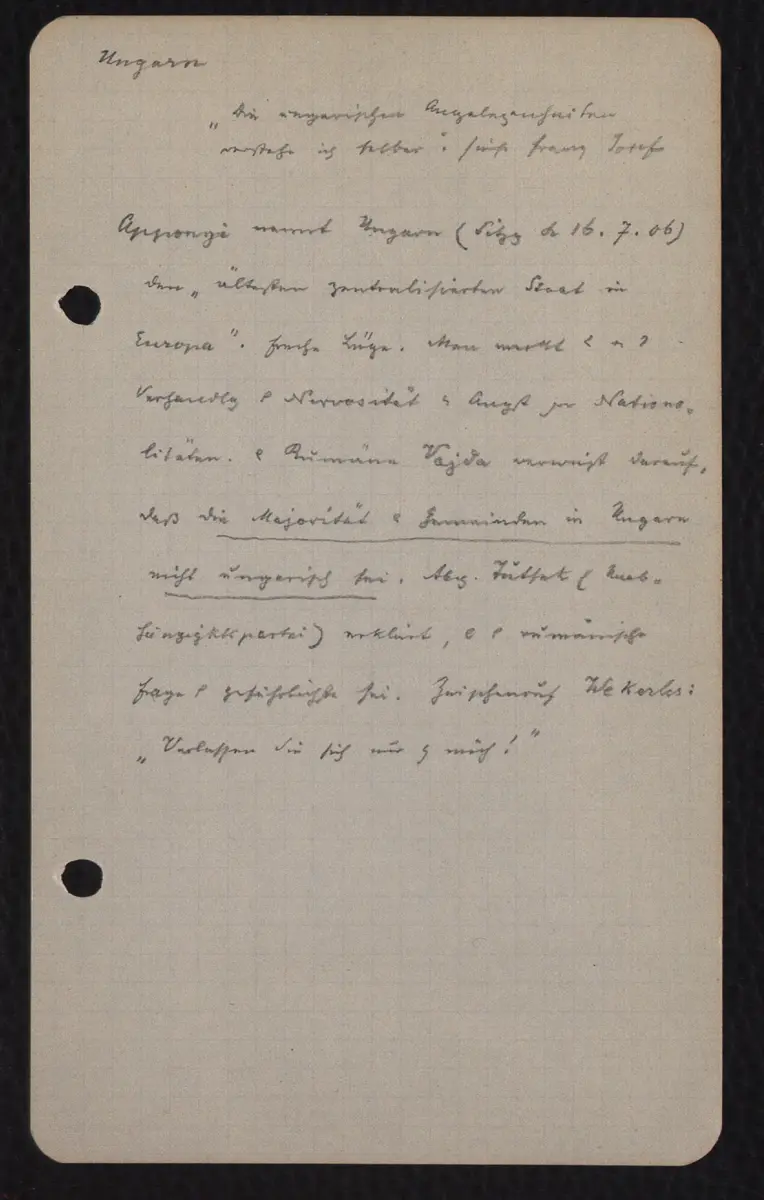 Ungarn
„Die ungarischen Angelegenheiten
verstehe ich selber“: Franz Josef
Apponyi nennt Ungarn (Sitzg 16. 7. 06)
den „ältesten zentralisierten Staat in
Europa“. Freche Lüge. Man merkt
Verhandlg Nervosität Angst Nationa-
litäten. Rumäne Vajda verweist darauf,
daß die Majorität Gemeinden in Ungarn
nicht ungarisch sei. Abg. (Unab-
hängigktspartei) erklärt, rumänische
Frage gefährlichste sei. Zwischenruf Wekerles:
„Verlassen Sie sich nur mich!“